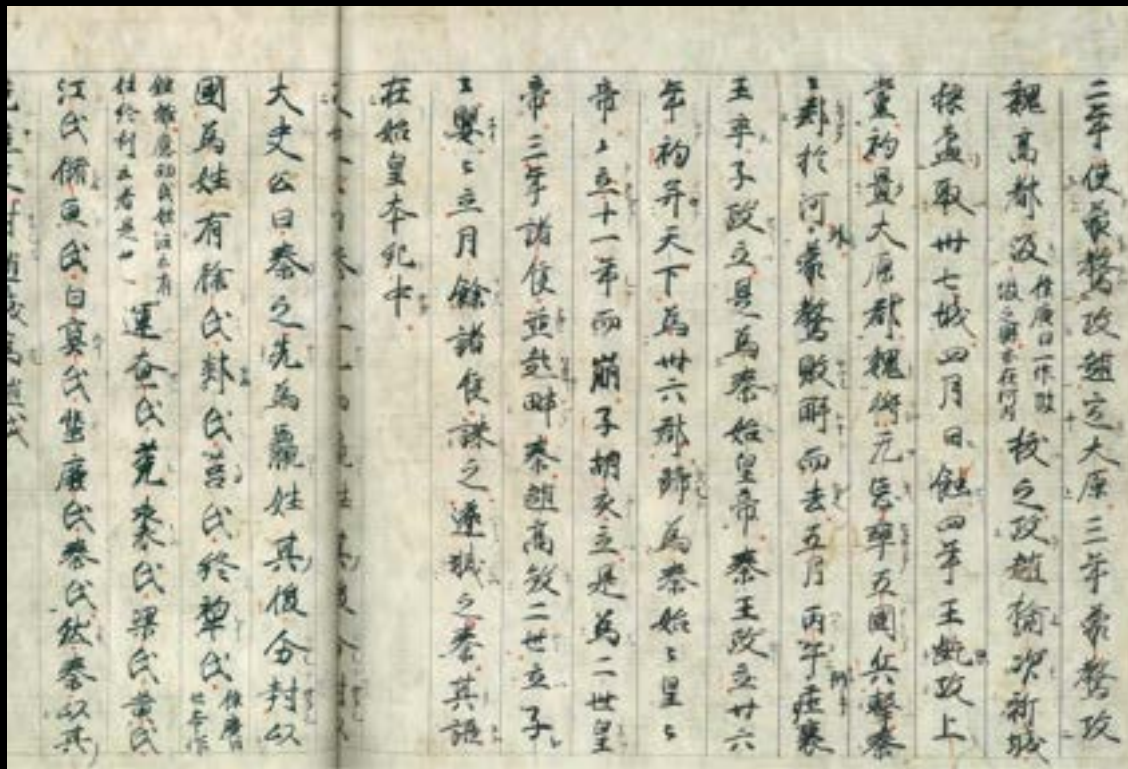 二年使蒙驁攻趙定大原三年蒙驁攻
魏高都汲徐廣曰一作波波之縣亦在河内抜之攻趙榆次新城
狼孟取卅七城四月日蝕四年王齕攻上
黨初置大原郡魏將无忌率五國兵擊秦
〻郤於河外蒙驁敗解而去五月丙午莊襄
王卒子政立是為秦始皇帝秦王政立廿六
年初并天下為卅六郡号為秦始〻皇〻
帝〻立十一年而崩子胡亥立是為二世皇
帝三年諸侯並起畔秦趙高殺二世立子
〻嬰〻立月餘諸侯誅之遂滅之秦其語
在始皇本紀中
大史公曰秦之先為嬴姓其後分封以
國為姓有徐氏郯氏莒氏終犂氏徐廣曰世本作
鍾離應劭氏姓注云有姓終利者是也運奄氏菟裘氏梁氏黃氏
江氏脩魚氏白冥氏蜚廉氏秦氏然秦以其
先造父封趙城為趙氏